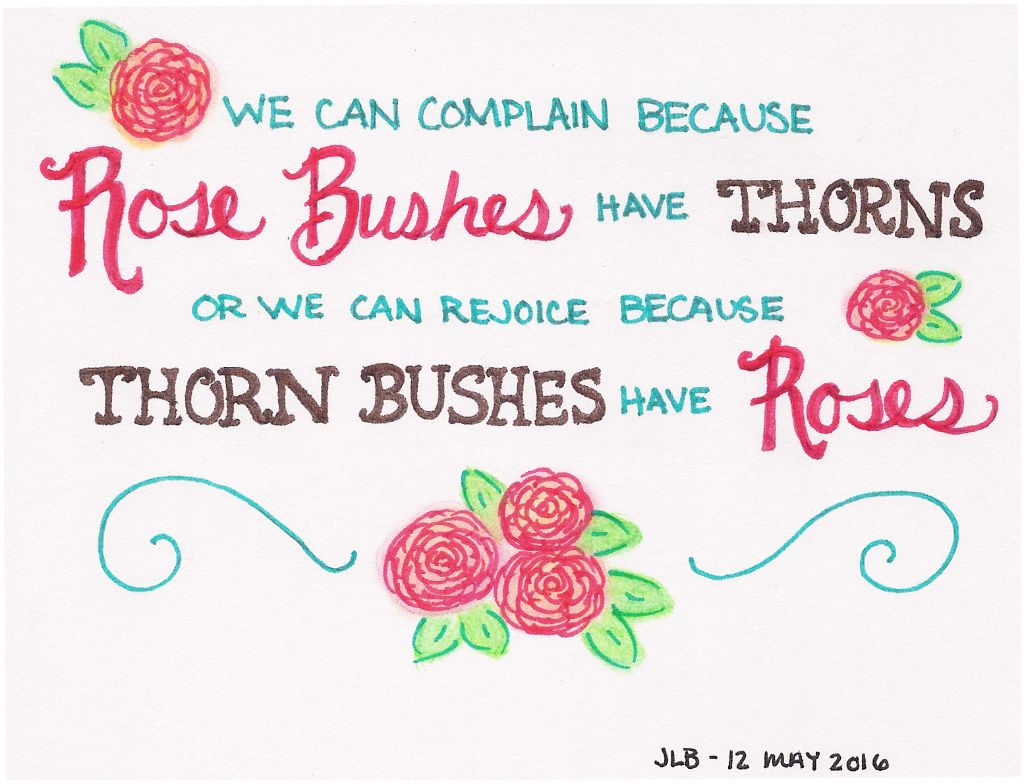 WE CAN COMPLAIN BECAUSE
Rose Bushes HAVE THORNS
OR WE CAN REJOICE BECAUSE
THORN BUSHES HAVE Roses
JLB - 12 MAY 2016